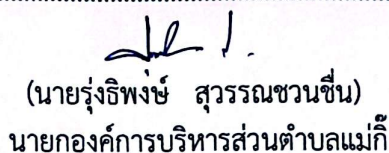 (นายรุ่งธิพงษ์ สุวรรณชวนชื่น)
นายกองค์การบริหารส่วนตำบลแม่กิ๊